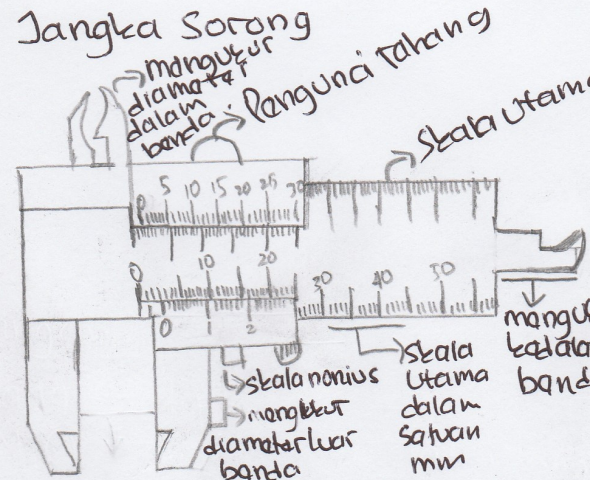 Jangka Sorong
mangukur
diamatar
dalam
banda.
Pangunci rahang
skala utama
0 5 10 15 20 25 30
0 10 20
30 40 50
0 1 2
skala nonius
mangukur
diamatar luar
banda
skala
utama
dalam
satuan
mm
mangu
kadala
banda